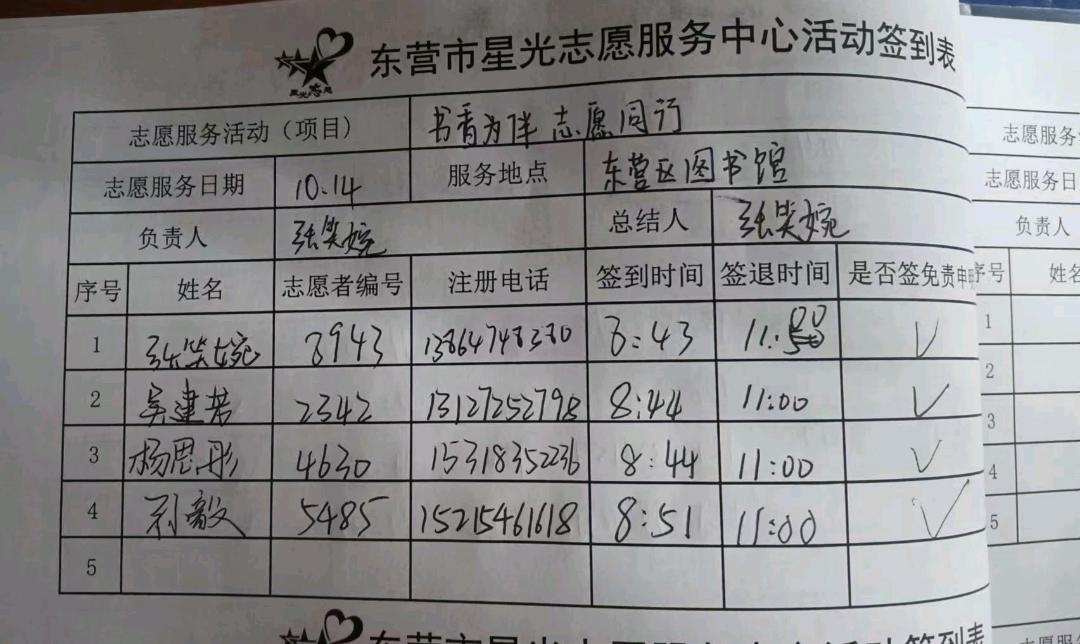 东营市星光志愿服务中心活动签到表
志愿服务活动（项目） 书香为伴 志愿同行
志愿服务日期 10.14 服务地点 东营区图书馆
负责人 张笑婉 总结人 张笑婉
序号 姓名 志愿者编号 注册电话 签到时间 签退时间 是否签免责申明
1 张笑婉 8943 13864748380 8:43 11:00 ✓
2 吴建若 2342 13127252798 8:44 11:00 ✓
3 杨思彤 4630 15318352236 8:44 11:00 ✓
4 刘毅 5485 15215461618 8:51 11:00 ✓
5
东营市星光志愿服务中心活动签到表
志愿服务
志愿服务日
负责人
序号 姓名
1
2
3
4
5